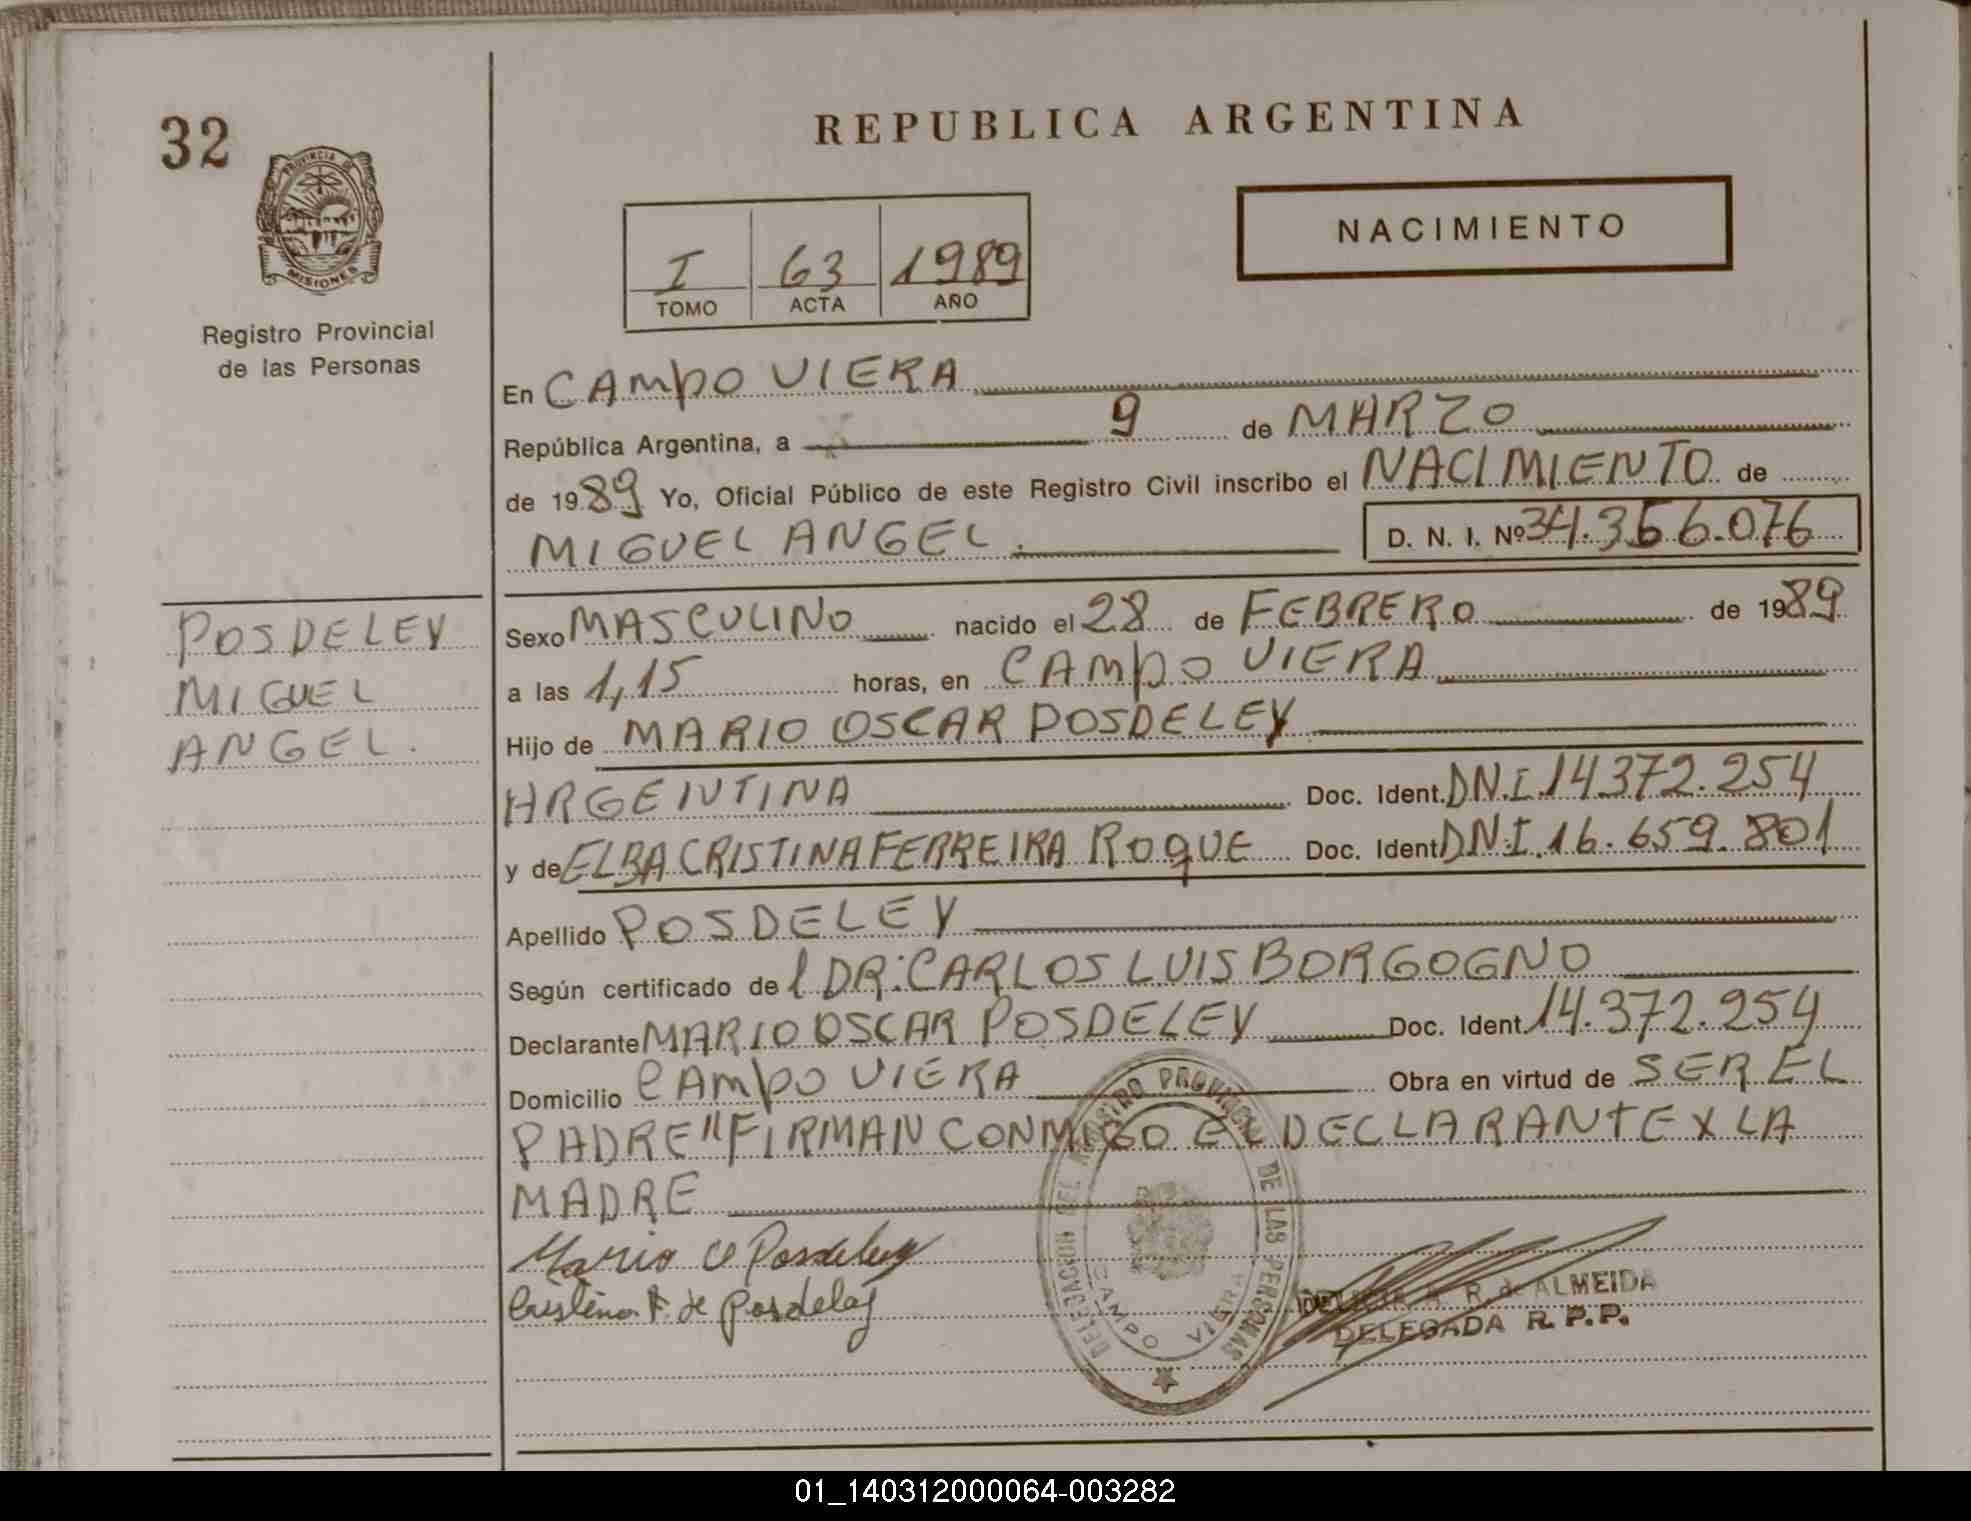 32
REPUBLICA ARGENTINA
PROVINCIA DE
MISIONES
Registro Provincial
de las Personas
I 63 1989
TOMO ACTA AÑO
NACIMIENTO
En CAMPO VIERA
República Argentina, a 9 de MARZO
de 1989 Yo, Oficial Público de este Registro Civil inscribo el NACIMIENTO de
MIGUEL ANGEL. D. N. I. Nº 34.366.076
POSDELEY
MIGUEL
ANGEL.
Sexo MASCULINO nacido el 28 de FEBRERO de 1989
a las 1,15 horas, en CAMPO VIERA
Hijo de MARIO OSCAR POSDELEY
ARGENTINA Doc. Ident. DN.I.14372.254
y de ELBA CRISTINA FERREIRA ROQUE Doc. Ident DN.I.16.659.801
Apellido POSDELEY
Según certificado de l DR: CARLOS LUIS BORGOGNO
Declarante MARIO OSCAR POSDELEY Doc. Ident 14.372.254
Domicilio CAMPO VIERA Obra en virtud de SER EL
PADRE "FIRMAN CONMIGO EL DECLARANTE X LA
MADRE
Mario O Posdeley
Cristina F. de Posdeley
DELEGACION DEL REGISTRO PROVINCIAL DE LAS PERSONAS
CAMPO VIERA
R. de ALMEIDA
DELEGADA R. P. P.
01_140312000064-003282